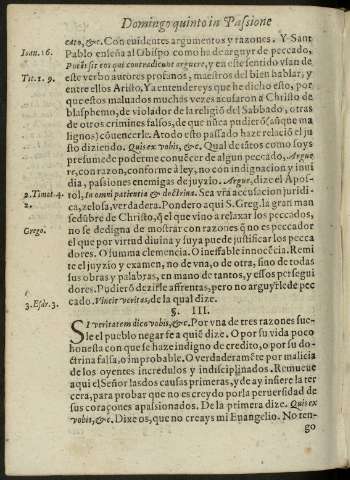 Domingo quinto in Passione
cato, &c. Con euidentes argumentos y razones. Y Sant
Ioan. 16.
Pablo enseña al Obispo como ha de arguyr de peccado,
Potēs sit eos qui contradicunt arguere, y en este sentido vsan de
Tit. 1. 9.
este verbo autores profanos, maestros del bien hablar, y
entre ellos Aristo, Ya entendereys que he dicho esto, por
que estos maluados muchas vezes acusaron a Christo de
blasphemo, de violador de la religiō del Sabbado, otras
de otros crimines falsos, de que nūca pudierō (aūque ma
lignos) cōuencerle. A todo esto passado haze relaciō el ju
sto diziendo. Quis ex vobis, &c. Qual de tātos como soys
presume de poderme conuēcer de algun peccado, Argue
re, con razon, conforme a ley, no con indignacion y inui
dia, passiones enemigas de juyzio. Argue, dize el Apos-
2. Timot. 4.
tol, In omni patientia & doctrina. Sea vr̄a accusacion juridi-
2.
ca, zelosa, verdadera. Pondero aqui S. Greg. la gran man
sedūbre de Christo, q̄ el que vino a relaxar los peccados,
Grego.
no se dedigna de mostrar con razones q̄ no es peccador
el que por virtud diuina y suya puede justificar los pecca
dores. O summa clemencia. O ineffable innocēcia. Remi
te el juyzio y examen, no de vna, o de otra, sino de todas
sus obras y palabras, en mano de tantos, y essos persegui
dores. Pudierō dezirle affrentas, pero no arguyrle de pec
3. Esdr. 3.
cado. Vincit veritas, de la qual dize.
§. III.
SI veritatem dico vobis, &c. Por vna de tres razones sue-
le el pueblo negar fe a quiē dize. O por su vida poco
honesta con que se haze indigno de credito, o por su do-
ctrina falsa, o improbable. O verdaderamēte por malicia
de los oyentes incredulos y indisciplinados. Remueue
aqui el Señor las dos causas primeras, y de ay infiere la ter
cera, para probar que no es creydo por la peruersidad de
sus coraçones apassionados. De la primera dize. Quis ex
vobis, &c. Dize os, que no creays mi Euangelio. No ten-
go